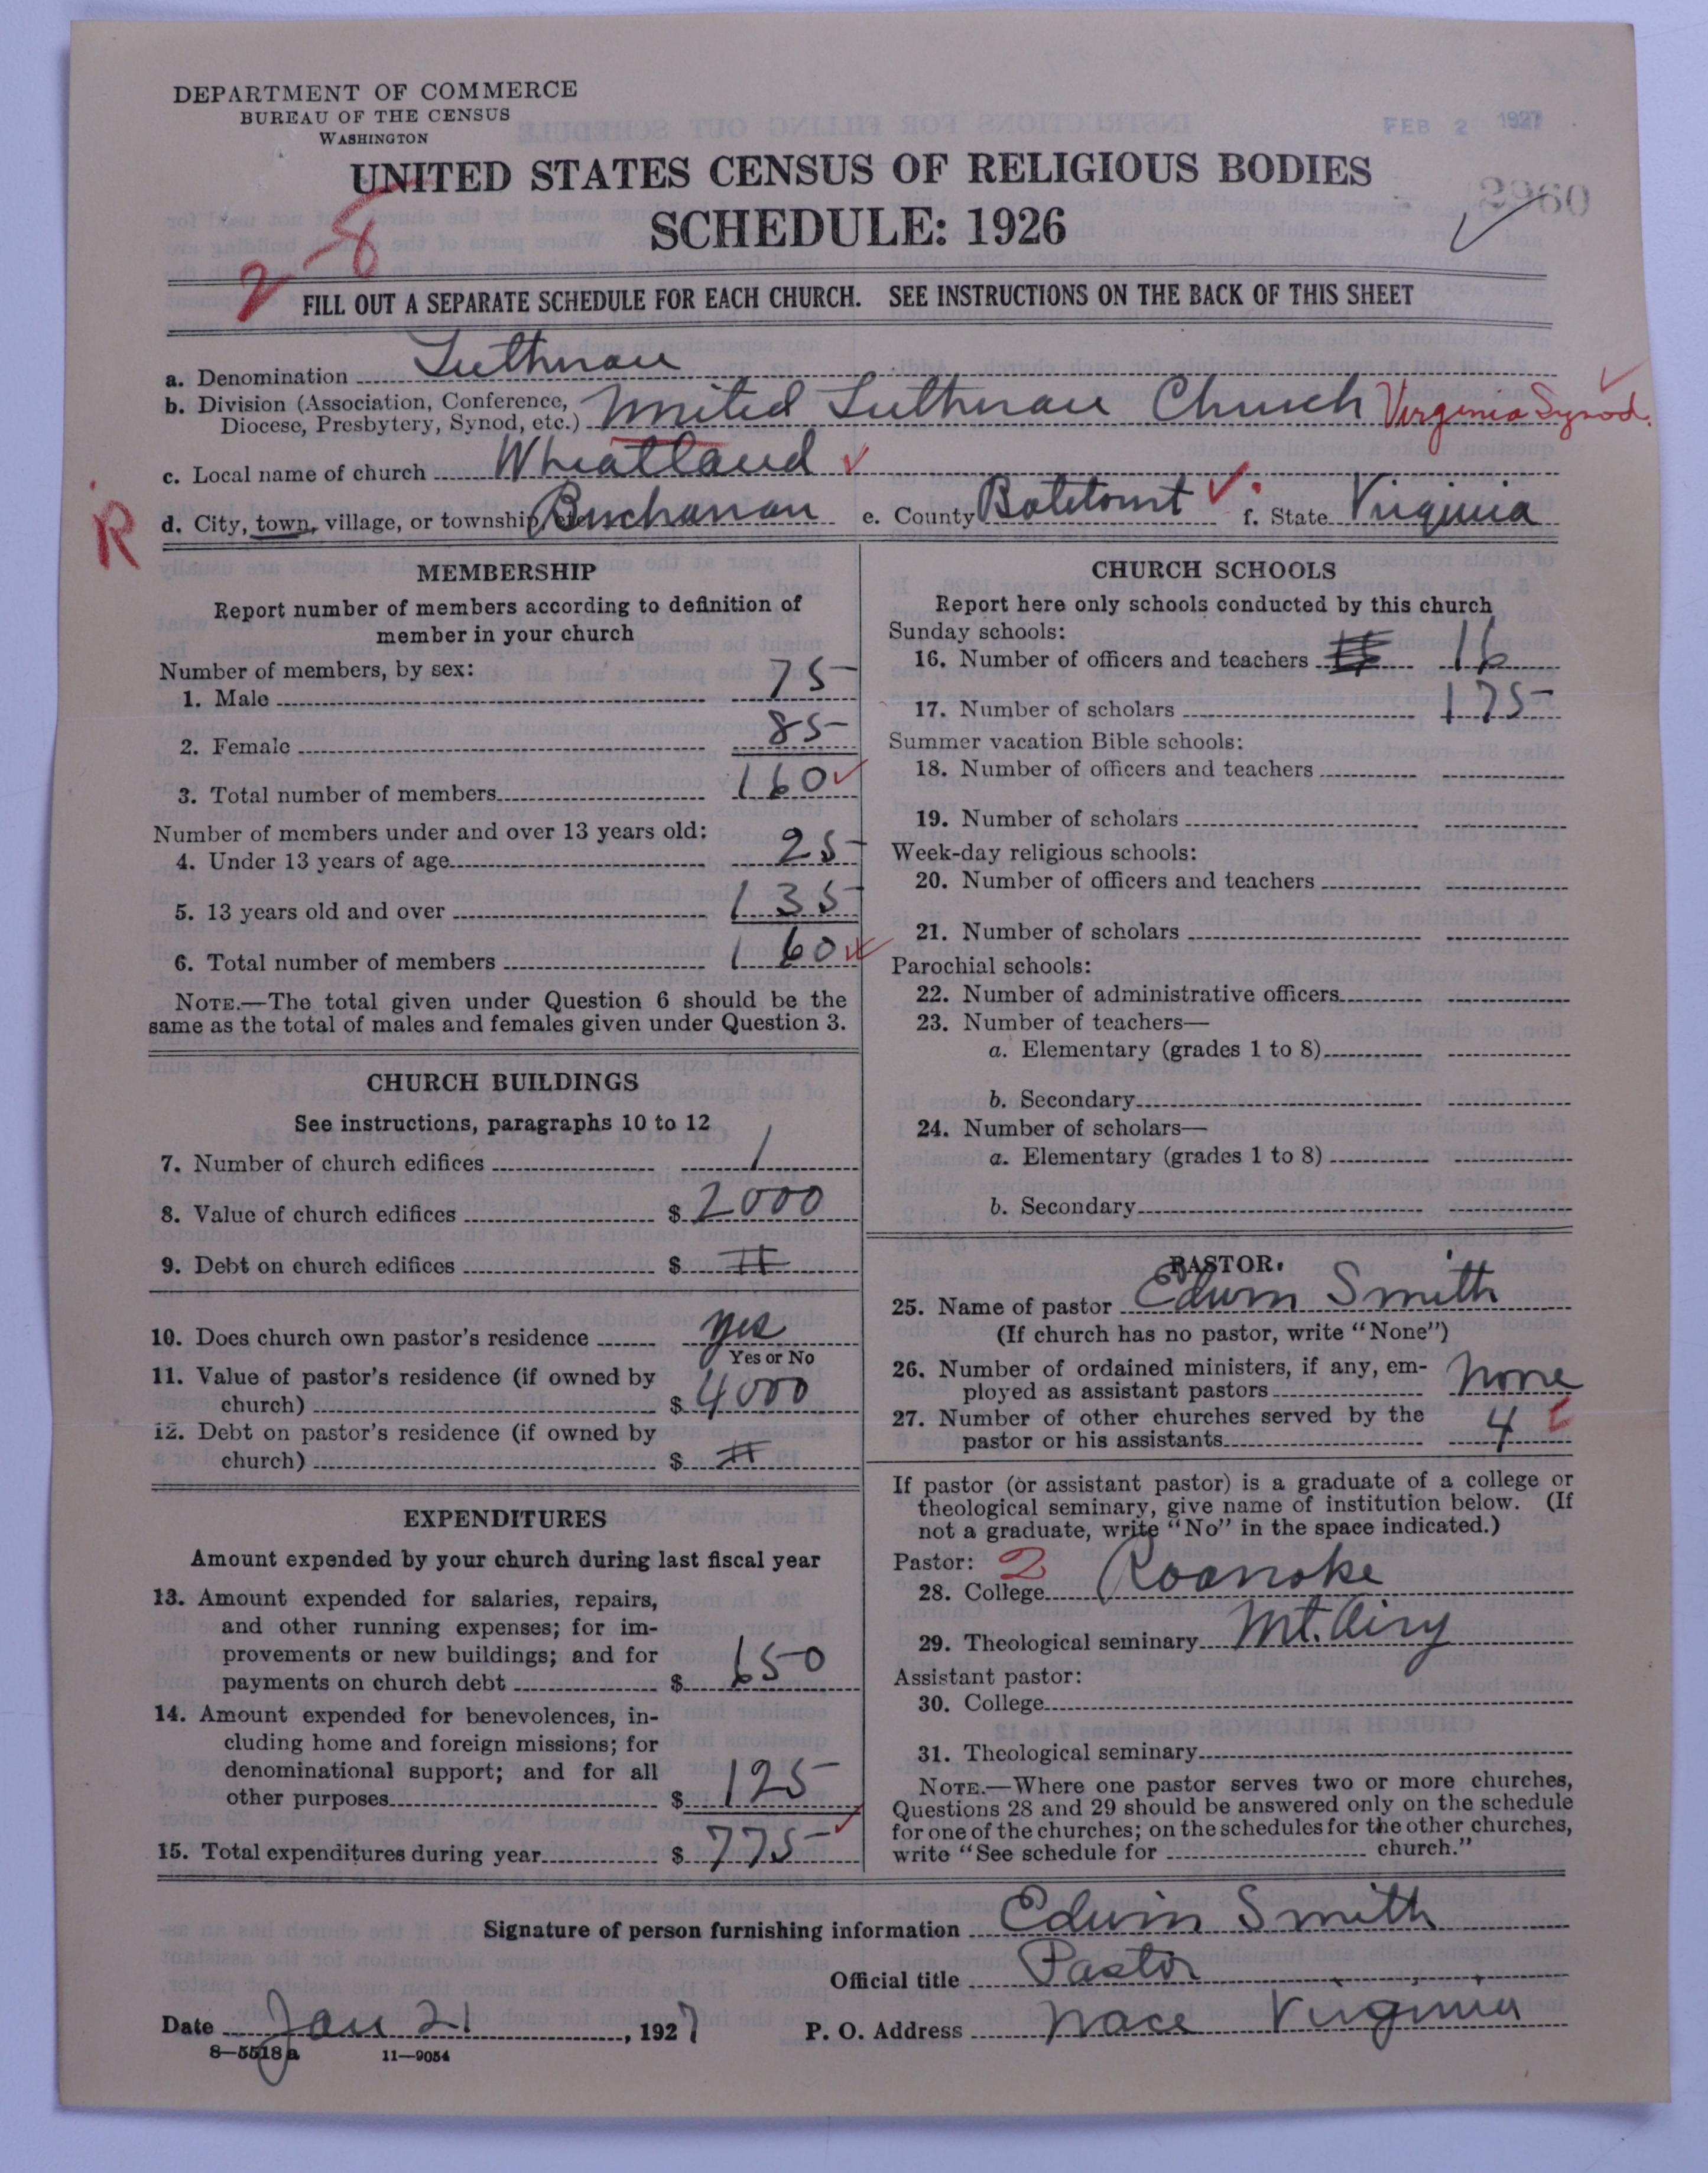 DEPARTMENT OF COMMERCE
BUREAU OF THE CENSUS
WASHINGTON
FEB 2 1927
UNITED STATES CENSUS OF RELIGIOUS BODIES
2960
SCHEDULE: 1926
2-8
FILL OUT A SEPARATE SCHEDULE FOR EACH CHURCH. SEE INSTRUCTIONS ON THE BACK OF THIS SHEET
a. Denomination Lutheran
b. Division (Association, Conference, Diocese, Presbytery, Synod, etc.) United Lutheran Church Virginia Synod.
c. Local name of church Wheatland
R
d. City, town, village, or township, etc. Buchanan e. County Botetourt f. State Virginia
MEMBERSHIP
Report number of members according to definition of
member in your church
Number of members, by sex:
1. Male 75
2. Female 85
3. Total number of members 160
Number of members under and over 13 years old:
4. Under 13 years of age 25
5. 13 years old and over 135
6. Total number of members 160
NOTE.—The total given under Question 6 should be the
same as the total of males and females given under Question 3.
CHURCH BUILDINGS
See instructions, paragraphs 10 to 12
7. Number of church edifices 1
8. Value of church edifices $ 2000
9. Debt on church edifices $
10. Does church own pastor's residence yes
Yes or No
11. Value of pastor's residence (if owned by
church) $ 4000
12. Debt on pastor's residence (if owned by
church) $
EXPENDITURES
Amount expended by your church during last fiscal year
13. Amount expended for salaries, repairs,
and other running expenses; for im-
provements or new buildings; and for
payments on church debt $ 650
14. Amount expended for benevolences, in-
cluding home and foreign missions; for
denominational support; and for all
other purposes $ 125
15. Total expenditures during year $ 775
CHURCH SCHOOLS
Report here only schools conducted by this church
Sunday schools:
16. Number of officers and teachers 16
17. Number of scholars 175
Summer vacation Bible schools:
18. Number of officers and teachers
19. Number of scholars
Week-day religious schools:
20. Number of officers and teachers
21. Number of scholars
Parochial schools:
22. Number of administrative officers
23. Number of teachers—
a. Elementary (grades 1 to 8)
b. Secondary
24. Number of scholars—
a. Elementary (grades 1 to 8)
b. Secondary
PASTOR
25. Name of pastor Edwin Smith
(If church has no pastor, write "None")
26. Number of ordained ministers, if any, em-
ployed as assistant pastors none
27. Number of other churches served by the
pastor or his assistants 4
If pastor (or assistant pastor) is a graduate of a college or
theological seminary, give name of institution below. (If
not a graduate, write "No" in the space indicated.)
Pastor: 2
28. College Roanoke
29. Theological seminary Mt. Airy
Assistant pastor:
30. College
31. Theological seminary
NOTE.—Where one pastor serves two or more churches,
Questions 28 and 29 should be answered only on the schedule
for one of the churches; on the schedules for the other churches,
write "See schedule for church."
Signature of person furnishing information Edwin Smith
Official title Pastor
Date Jan 21, 1927 P. O. Address Nace Virginia
8—5518a 11—9054